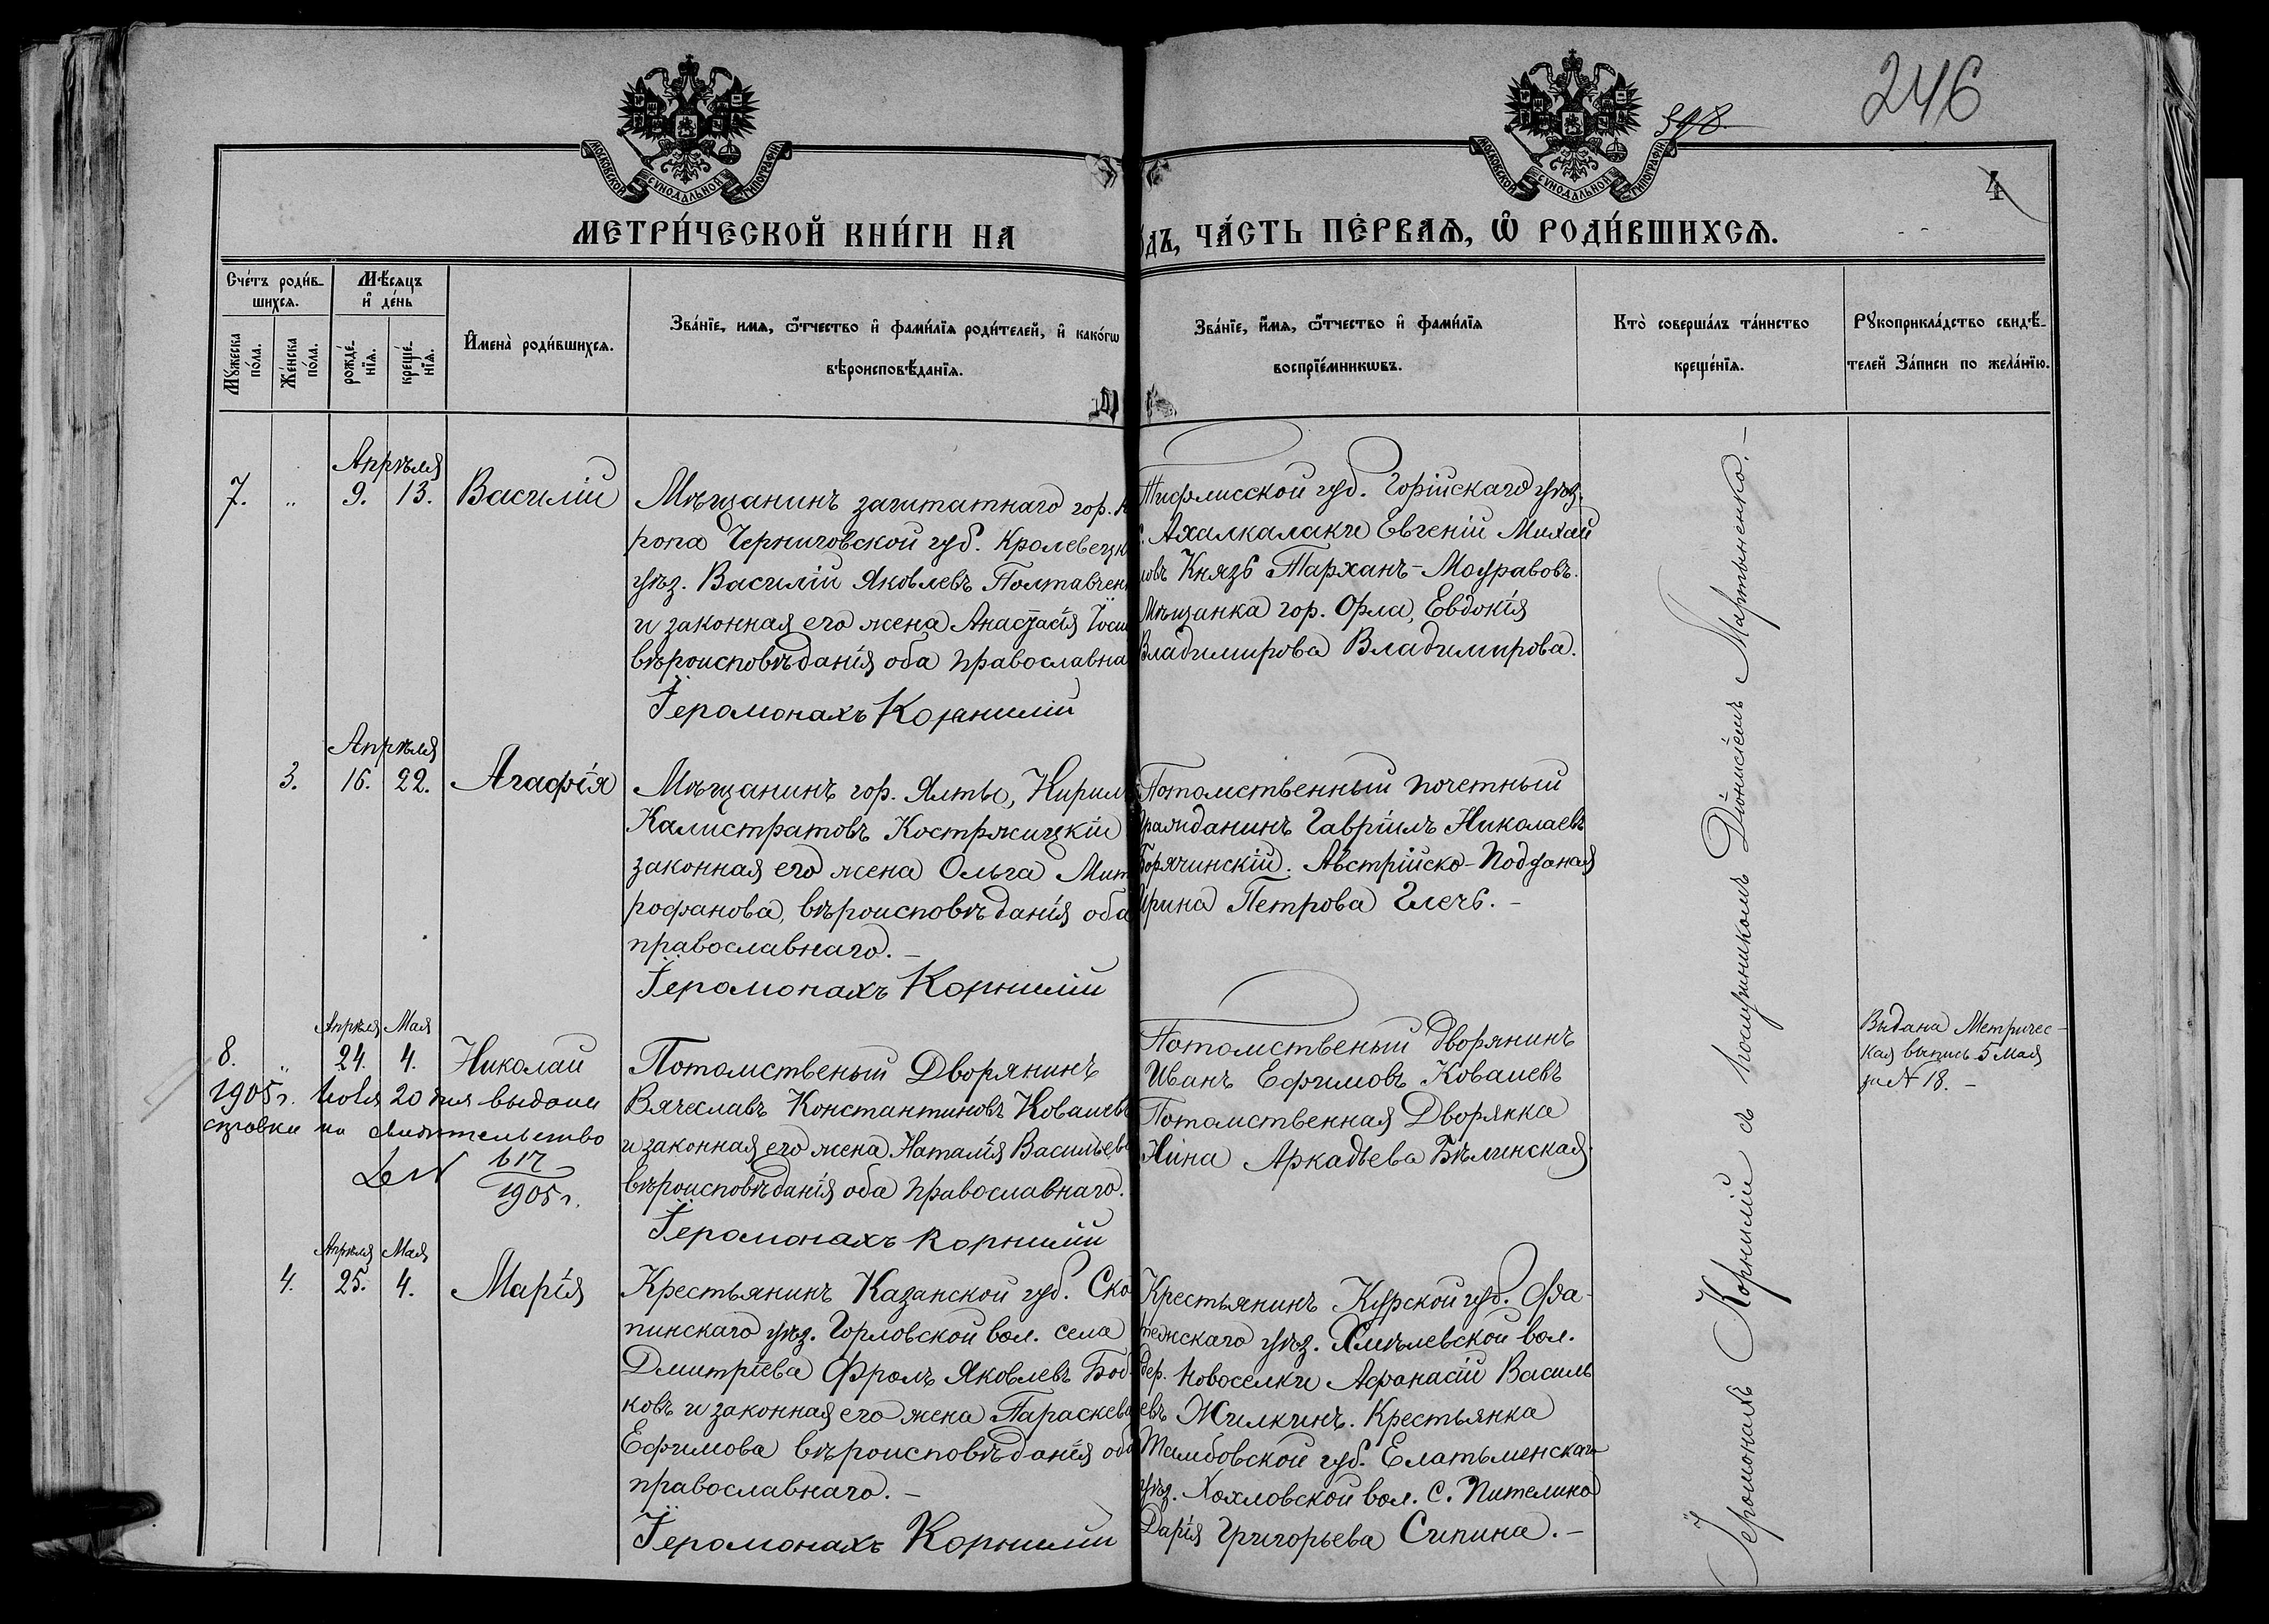 246
598.
4
МОСКОВСКОЙ СѴНОДАЛЬНОЙ ТИПОГРАФІИ
МОСКОВСКОЙ СѴНОДАЛЬНОЙ ТИПОГРАФІИ
МЕТРИ́ЧЕСКОЙ КНИ́ГИ НА
ЧА́СТЬ ПЕ́РВАѦ, Ѽ РОДИ́ВШИХСѦ.
Сче́тъ роди́в-
шихсѧ.
Мѣ́сѧцъ
и҆ де́нь
Мꙋ́жеска
по́ла.
Же́нска
по́ла.
рожде́-
нїѧ.
креще́-
нїѧ.
И҆мена̀ роди́вшихсѧ.
Зва́нїе, имѧ, ѻ҆́тчество и҆ фами́лїѧ роди́телей, и҆ како́гѡ
вѣроисповѣ́данїѧ.
Зва́нїе, и҆́мѧ, ѻ҆́тчество и҆ фами́лїѧ
воспрїе́мникѡвъ.
Кто̀ соверша́лъ та́инство
креще́нїѧ.
Рꙋкоприкла́дство свидѣ́-
телей За́писи по жела́нїю.
Апрѣля
7. „ 9. 13. Василій
Мѣщанинъ заштатнаго гор. К
ропа Черниговской губ. Кролевецк
уѣз. Василій Яковлевъ Полтавчен
и законная его жена Анастасія Іоси
вѣроисповѣданія оба православна
Іеромонахъ Корнилій
Тифлисской губ. Горійскаго уѣз.
с. Ахалкалаки Евгеній Михаи
ловъ Князь Тарханъ-Моуравовъ.
Мѣщанка гор. Орла, Евдокія
Владимирова Владимирова.
Апрѣля
3. 16. 22. Агафія
Мѣщанинъ гор. Ялты, Кирил
Калистратовъ Костржицкій
законная его жена Ольга Мит
рофанова, вѣроисповѣданія оба
православнаго. –
Іеромонахъ Корнилій
Потомственный почетный
гражданинъ Гавріилъ Николаевъ
Борячинскій. Австрійско-Подданая
Ирина Петрова Глечь. –
Апрѣля Мая
8. „ 24. 4. Николай
1905 г. Іюля 20 дня выдана
справка на свидѣтельство
за N 617
1905 г.
Потомственый Дворянинъ
Вячеславъ Константиновъ Ковалевъ
и законная его жена Наталія Васильева
вѣроисповѣданія оба православнаго.
Іеромонахъ Корнилій
Потомственый Дворянинъ
Иванъ Ефимовъ Ковалевъ
Потомственная Дворянка
Нина Аркадьева Бѣлинская.
Выдана Метричес-
кая выпись 5 Мая
за N 18. –
Апрѣля Мая
4. 25. 4. Марія
Крестьянинъ Казанской губ. Ско
пинскаго уѣз. Горловской вол. села
Дмитріева Фролъ Яковлевъ Боч-
ковъ и законная его жена Параскева
Ефимова вѣроисповѣданія оба
православнаго. –
Іеромонахъ Корнилій
Крестьянинъ Курской губ. Фа-
тежскаго уѣз. Хмѣлевской вол.
дер. Новоселки Афанасій Василь
евъ Жилкинъ. Крестьянка
Тамбовской губ. Елатьменскаго
уѣз. Хохловской вол. с. Пителино
Дарія Григорьева Сипина. –
Іеромонахъ Корнилій съ послушникомъ Діонисіемъ Мартыненко. –